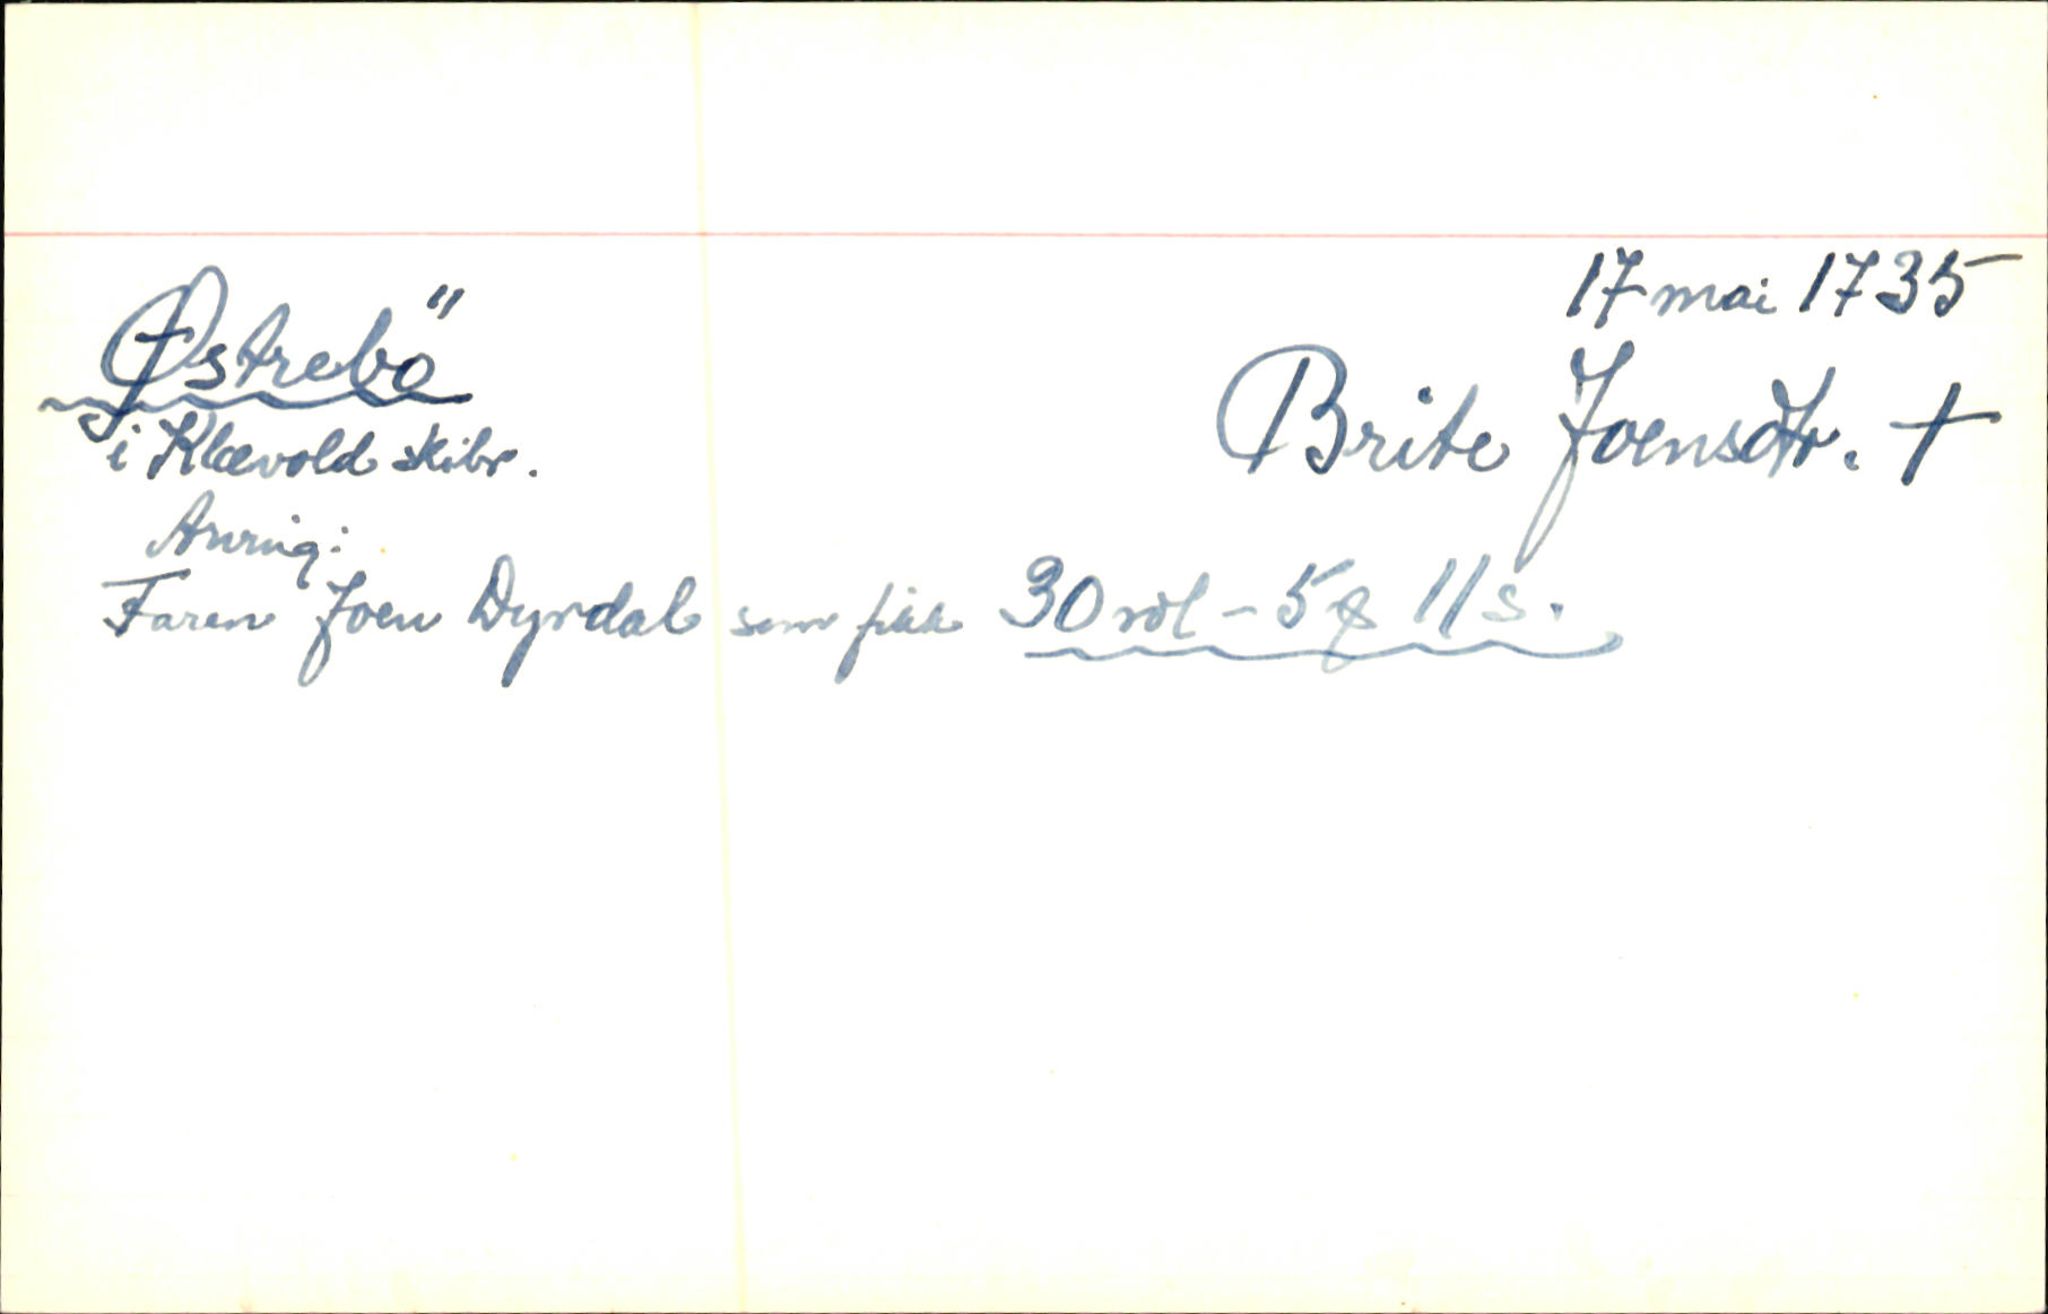 17 mai 1735
Østrebö
Brite Joensdtr. †
i Klævold skibr.
Arving:
Faren Joen Dyrdal som fikk 30 rdl - 5 11 s.